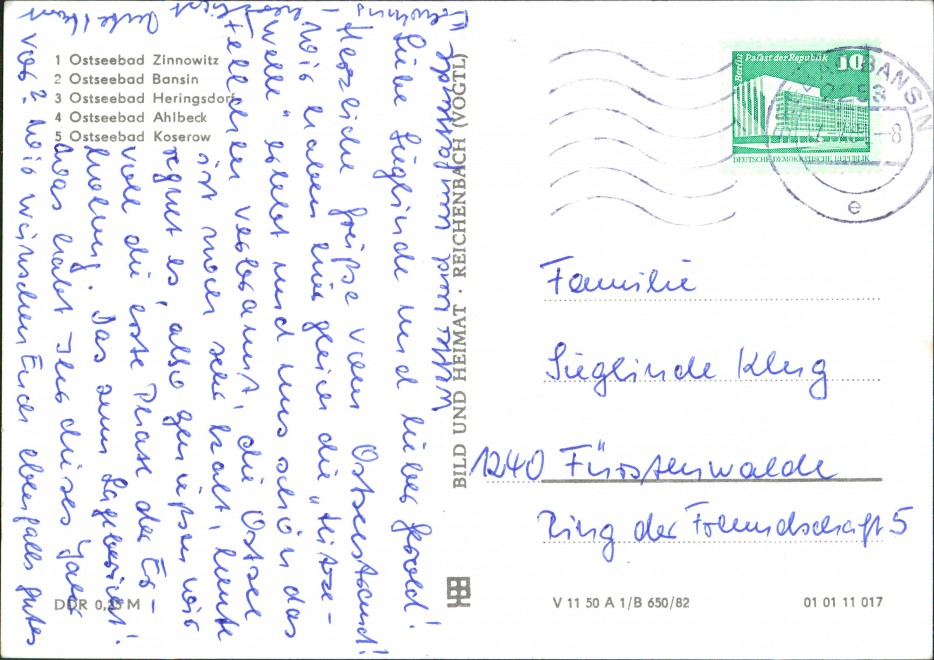 1 Ostseebad Zinnowitz
2 Ostseebad Bansin
3 Ostseebad Heringsdorf
4 Ostseebad Ahlbeck
5 Ostseebad Koserow
DDR 0,25 M
Liebe Sieglinde und lieber Gerold!
Herzliche Grüße vom Ostseestrand!
Wir haben hier gleich die „Hitze-
welle“ erlebt und uns schön das
Fellchen verbrannt, die Ostsee
ist noch sehr kalt, heute
regnet es, also genießen wir
voll die erste Phase der Er-
holung. Das zum Lagebericht!
Was habt Ihr dieses Jahr
vor? Wir wünschen Euch ebenfalls gutes
Wetter und
BILD UND HEIMAT · REICHENBACH (VOGTL)
Berlin Palast der Republik
10
DEUTSCHE DEMOKRATISCHE REPUBLIK
BANSIN
e
Familie
Sieglinde Klug
1240 Fürstenwalde
Ring der Freundschaft 5
V 11 50 A 1/B 650/82
01 01 11 017